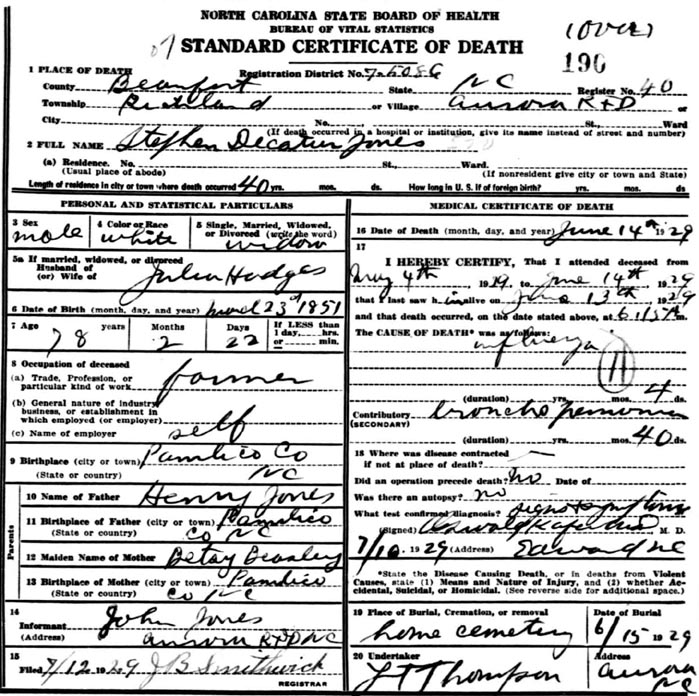 NORTH CAROLINA STATE BOARD OF HEALTH
BUREAU OF VITAL STATISTICS
STANDARD CERTIFICATE OF DEATH
(over)
190
1 PLACE OF DEATH
Registration District No. 7-5086
County Beaufort State NC Register No. 40
Township Richland or Village Aurora RFD or
City No. St., Ward
(If death occurred in a hospital or institution, give its name instead of street and number)
2 FULL NAME Stephen Decatur Jones
(a) Residence. No. St., Ward.
(Usual place of abode) (If nonresident give city or town and State)
Length of residence in city or town where death occurred 40 yrs. mos. ds. How long in U. S. if of foreign birth? yrs. mos. ds.
PERSONAL AND STATISTICAL PARTICULARS
3 Sex
male
4 Color or Race
white
5 Single, Married, Widowed, or Divorced (write the word)
widow
5a If married, widowed, or divorced
Husband of
(or) Wife of Julia Hodges
6 Date of Birth (month, day, and year) 23d 1851
7 Age 78 years
Months 2
Days 22
If LESS than
1 day, hrs.
or min.
8 Occupation of deceased
(a) Trade, Profession, or
particular kind of work farmer
(b) General nature of industry,
business, or establishment in
which employed (or employer)
(c) Name of employer self
9 Birthplace (city or town) Pamlico Co
(State or country) NC
Parents
10 Name of Father Henry Jones
11 Birthplace of Father (city or town) Pamlico
(State or country) Co NC
12 Maiden Name of Mother Betsy Beasley
13 Birthplace of Mother (city or town) Pamlico
(State or country) Co NC
14
Informant John Jones
(Address) Aurora RFD NC
15
Filed 7/12 1929 J B Smithwick
REGISTRAR
MEDICAL CERTIFICATE OF DEATH
16 Date of Death (month, day, and year) June 14th 1929
17
I HEREBY CERTIFY, That I attended deceased from
May 4th 1929, to June 14th, 1929
that I last saw him alive on June 13th, 1929
and that death occurred, on the date stated above, at 6:15 m.
The CAUSE OF DEATH* was as follows:
influenza
11
(duration) yrs. mos. 4 ds.
Contributory broncho pneumonia
(SECONDARY)
(duration) yrs. mos. 40 ds.
18 Where was disease contracted
if not at place of death?
Did an operation precede death? no Date of
Was there an autopsy? no
What test confirmed diagnosis? signs & symptoms
(Signed) Oswald M. D.
7/10 1929 (Address) Edward NC
*State the Disease Causing Death, or in deaths from Violent
Causes, state (1) Means and Nature of Injury, and (2) whether Accidental, Suicidal, or Homicidal. (See reverse side for additional space.)
19 Place of Burial, Cremation, or removal
home cemetery
Date of Burial
6/15 1929
20 Undertaker
L T Thompson
Address
Aurora
NC